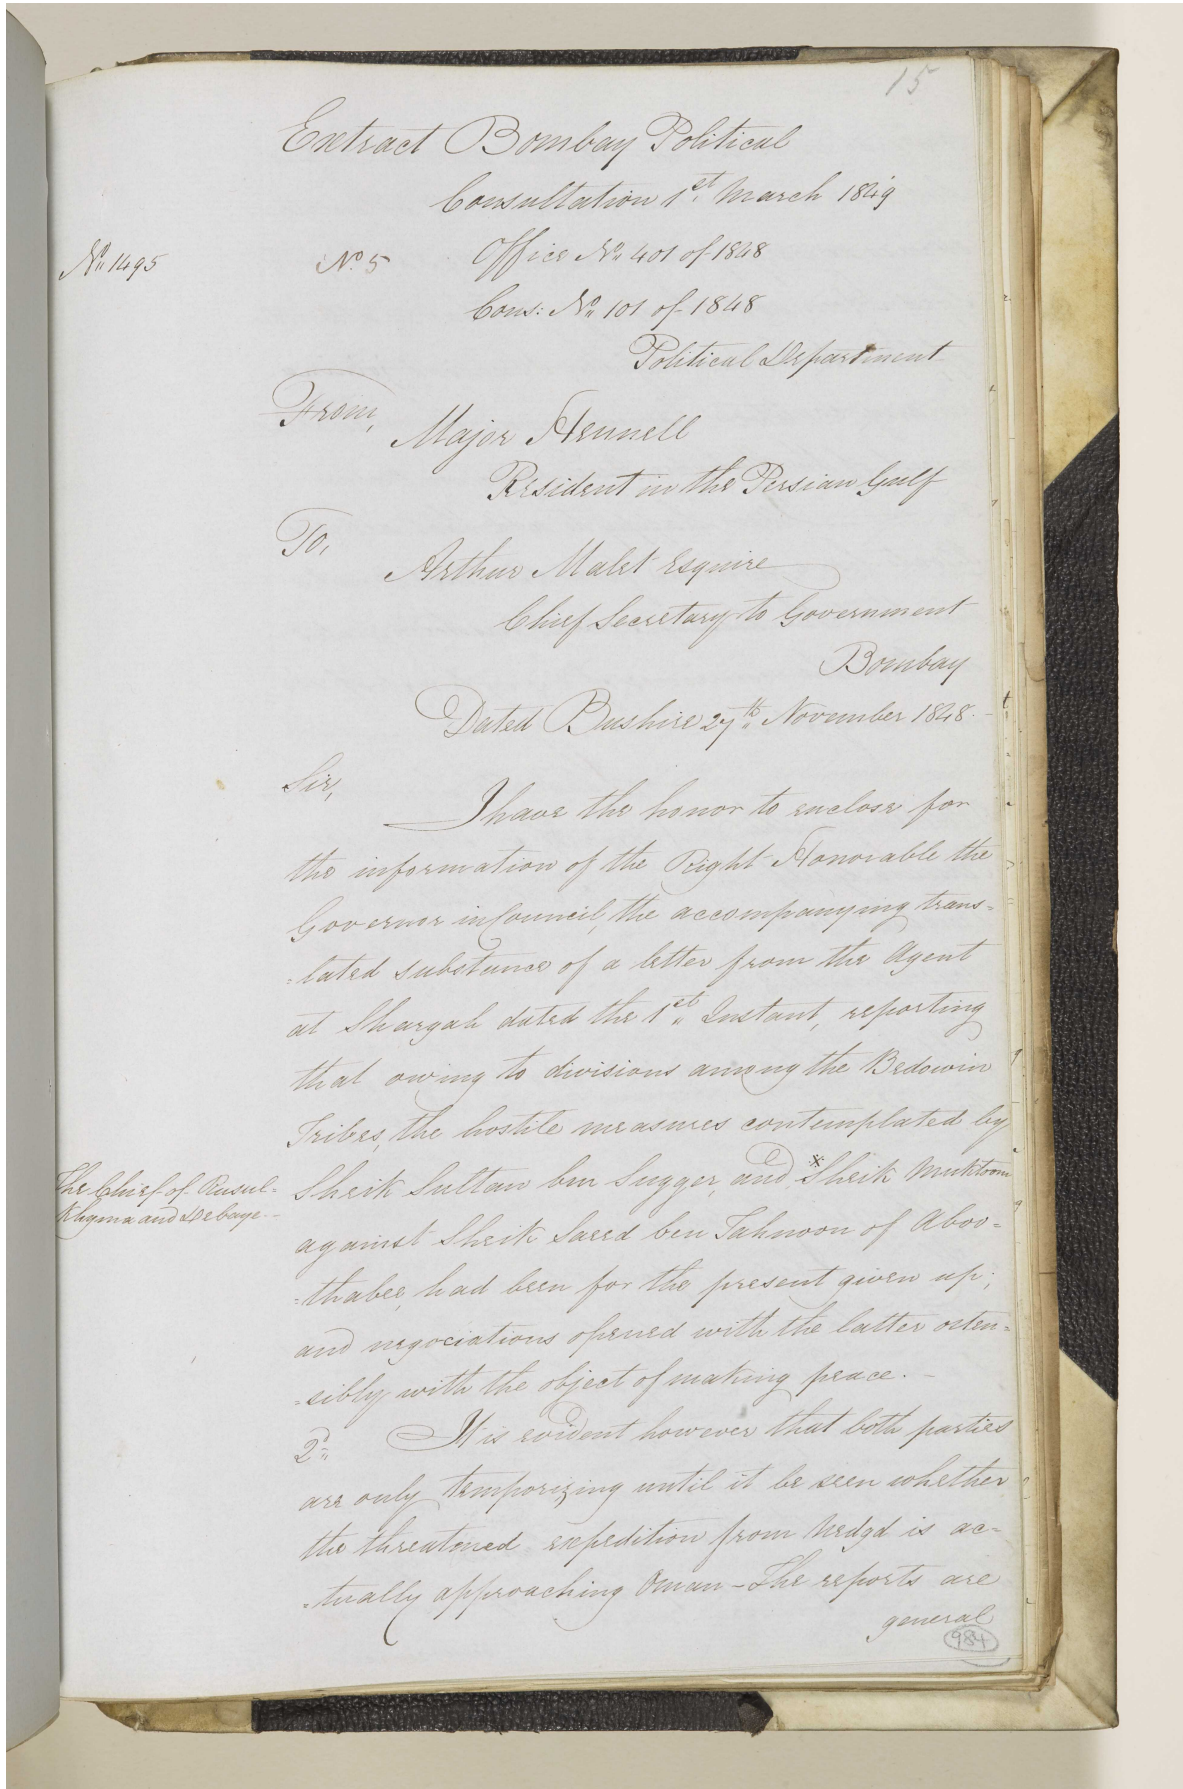 15
Extract Bombay Political
Consultation 1st March 1849
No. 1495
No. 5
Office No. 401 of 1848
Cons: No. 101 of 1848
Political Department
From,
Major Hennell
Resident in the Persian Gulf
To,
Arthur Malet Esquire
Chief Secretary to Government
Bombay
Dated Bushire 27th November 1848.
Sir,
I have the honor to enclose for
the information of the Right Honorable the
Governor in Council, the accompanying trans=
=lated substance of a letter from the Agent
at Shargah dated the 1st Instant, reporting
that owing to divisions among the Bedowin
Tribes, the hostile measures contemplated by
Sheik Sultan bin Sugger, and x Sheik Muktoom
The Chief of Rusul=
Khyma and Debaye.
against Sheik Saeed ben Tahnoon of Aboo=
=thabee, had been for the present given up;
and negociations opened with the latter osten=
=sibly with the object of making peace. -
2d. It is evident however that both parties
are only temporizing until it be seen whether
the threatened expedition from Nedgd is ac=
=tually approaching Oman - The reports are
general
984